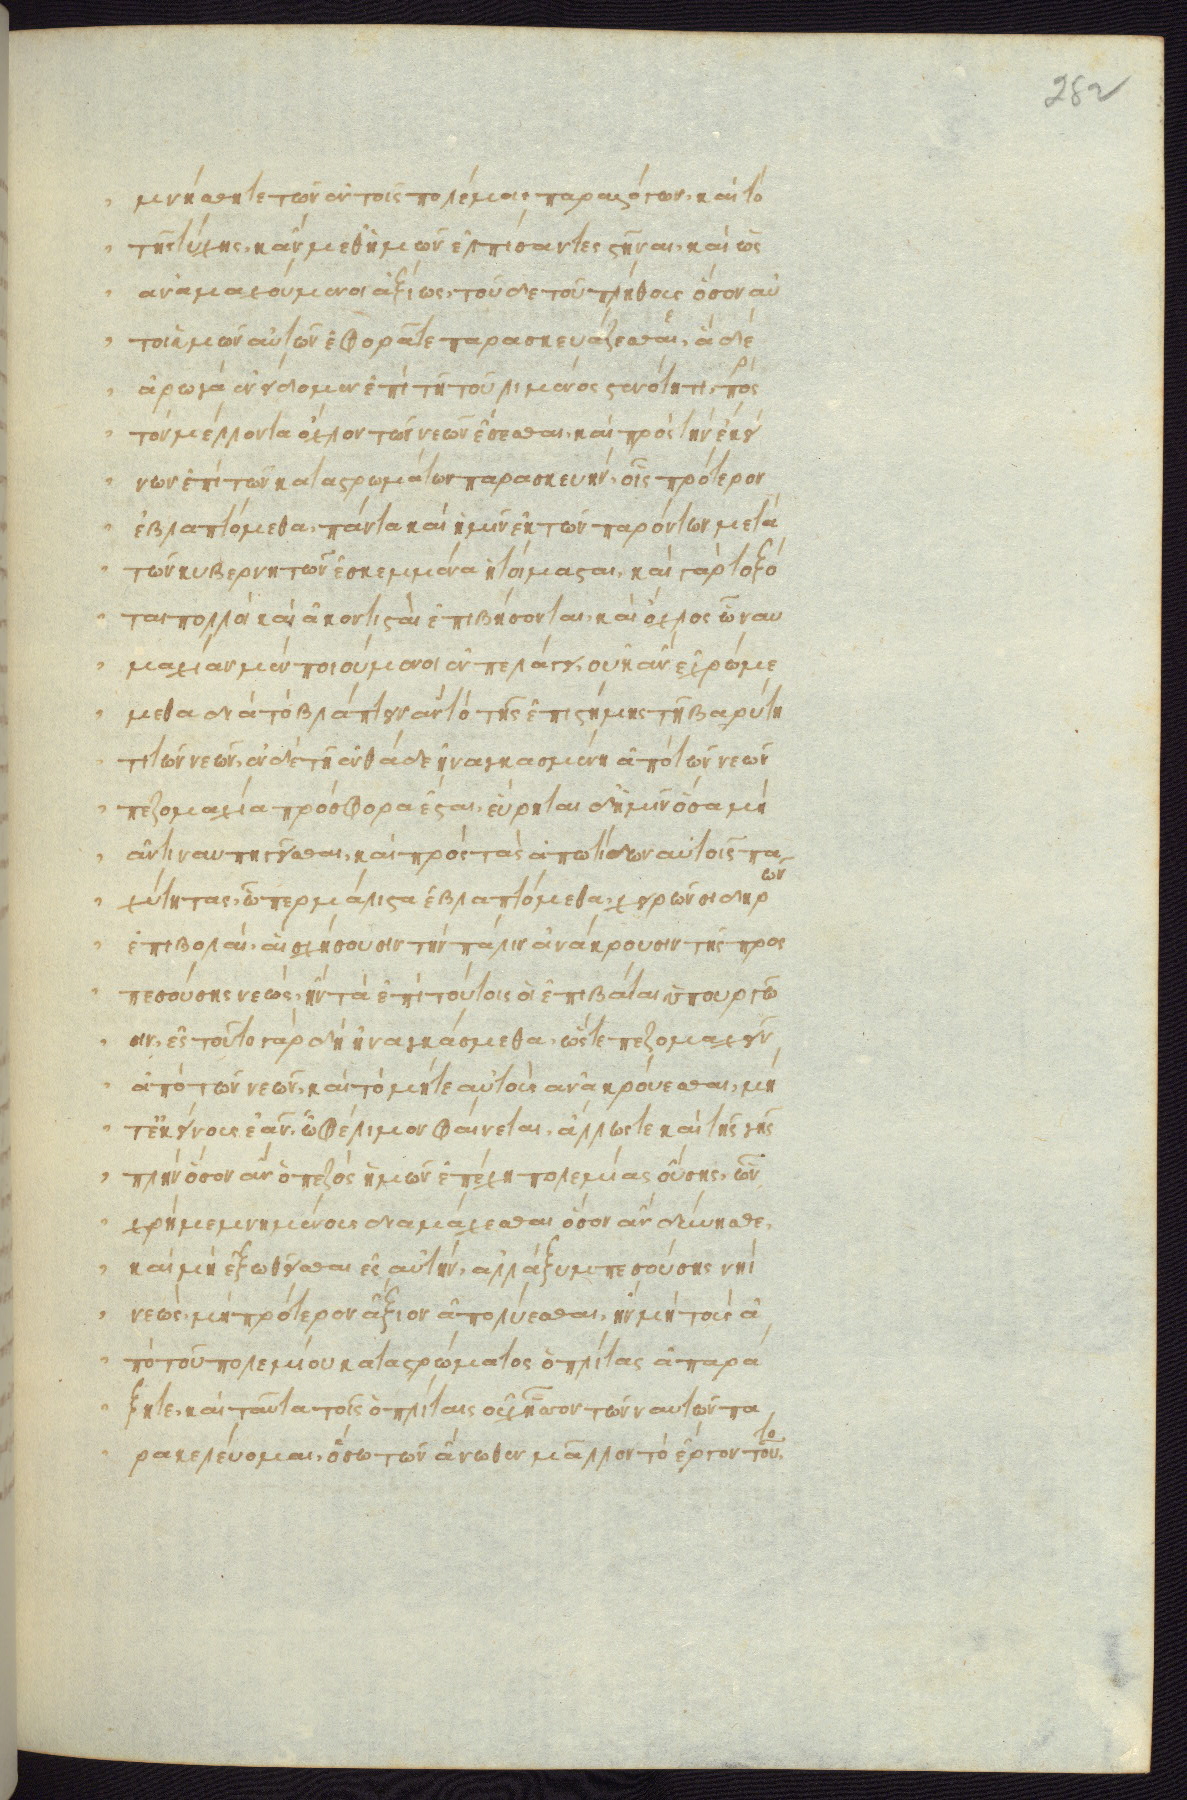 282
μνήσθητε τῶν ἐν τοῖς πολέμοις παραλόγων, καὶ τὸ
τῆς τύχης, κἂν μεθ' ἡμῶν ἐλπίσαντες στῆναι, καὶ ὡς
ἀναμαχούμενοι ἀξίως, τοῦδε τοῦ πλήθους ὅσον αὐ
τοὶ ὑμῶν αὐτῶν ἐφορᾶτε παρασκευάζεσθαι, ἃ δὲ
ἀρωγὰ ἐνείδομεν ἐπὶ τῆ τοῦ λιμένος στενότητι, πρὸς
τὸν μέλλοντα ὄχλον τῶν νεῶν ἔσεσθαι, καὶ πρὸς τὴν ἐκεί
νων ἐπὶ τῶν καταστρωμάτων παρασκευήν, οἷς πρότερον
ἐβλαπτόμεθα, πάντα καὶ ἡμῖν ἐκ τῶν παρόντων μετὰ
τῶν κυβερνητῶν ἐσκεμμένα ἡτοίμασται, καὶ γὰρ τοξό
ται πολλοὶ καὶ ἀκοντισταὶ ἐπιβήσονται, καὶ ὄχλος ᾧ ναυ
μαχίαν μὲν ποιούμενοι ἐν πελάγει, οὐκ ἂν ἐχρώμε
μεθα διὰ τὸ βλάπτειν ἂν τὸ τῆς ἐπιστήμης τῆ βαρύτη
τι τῶν νεῶν, ἐν δὲ τῆ ἐνθάδε ἠναγκασμένη ἀπὸ τῶν νεῶν
πεζομαχία πρόσφορα ἔσται, εὕρηται δ' ἡμῖν ὅσα μὴ
ἀντιναυπηγεῖσθαι, καὶ πρὸς τὰς ἐπωτίδων αὐτοῖς πα
χύτητας, ᾧπερ μάλιστα ἐβλαπτόμεθα, χειρῶν σιδηρῶν
ἐπιβολαί, αἳ σχήσουσιν τὴν πάλιν ἀνάκρουσιν τῆς προσ
πεσούσης νεώς, ἢν τὰ ἐπὶ τούτοις οἱ ἐπιβάται ὑπουργῶ
σιν, ἐς τοῦτο γὰρ δὴ ἠναγκάσμεθα, ὥστε πεζομαχεῖν
ἀπὸ τῶν νεῶν, καὶ τὸ μήτε αὐτοὺς ἀνακρούεσθαι, μή
τ' ἐκείνους ἐᾶν, ὠφέλιμον φαίνεται, ἄλλως τε καὶ τῆς γῆς
πλὴν ὅσον ἂν ὁ πεζὸς ἡμῶν ἐπέχη πολεμίας οὔσης, ὧν
χρὴ μεμνημένους διαμάχεσθαι ὅσον ἂν δύνησθε,
καὶ μὴ ἐξωθεῖσθαι ἐς αὐτήν, ἀλλὰ ξυμπεσούσης νηὶ
νεώς, μὴ πρότερον ἄξιον ἀπολύεσθαι, ἢν μὴ τοὺς ἀ
πὸ τοῦ πολεμίου καταστρώματος ὁπλίτας ἀπαρά
ξητε, καὶ ταῦτα τοῖς ὁπλίταις οὐχ ἧσσον τῶν ναυτῶν πα
ρακελεύομαι, ὅσω τῶν ἄνωθεν μᾶλλον τὸ ἔργον τοῦτο,